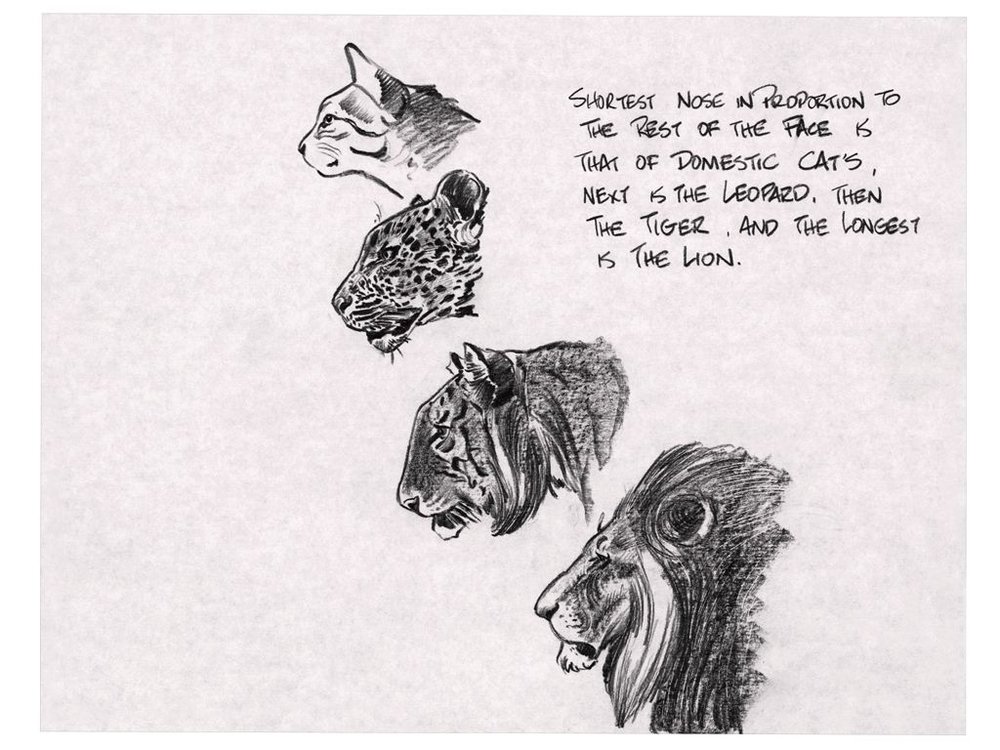 SHORTEST NOSE IN PROPORTION TO
THE REST OF THE FACE IS
THAT OF DOMESTIC CAT'S,
NEXT IS THE LEOPARD. THEN
THE TIGER, AND THE LONGEST
IS THE LION.